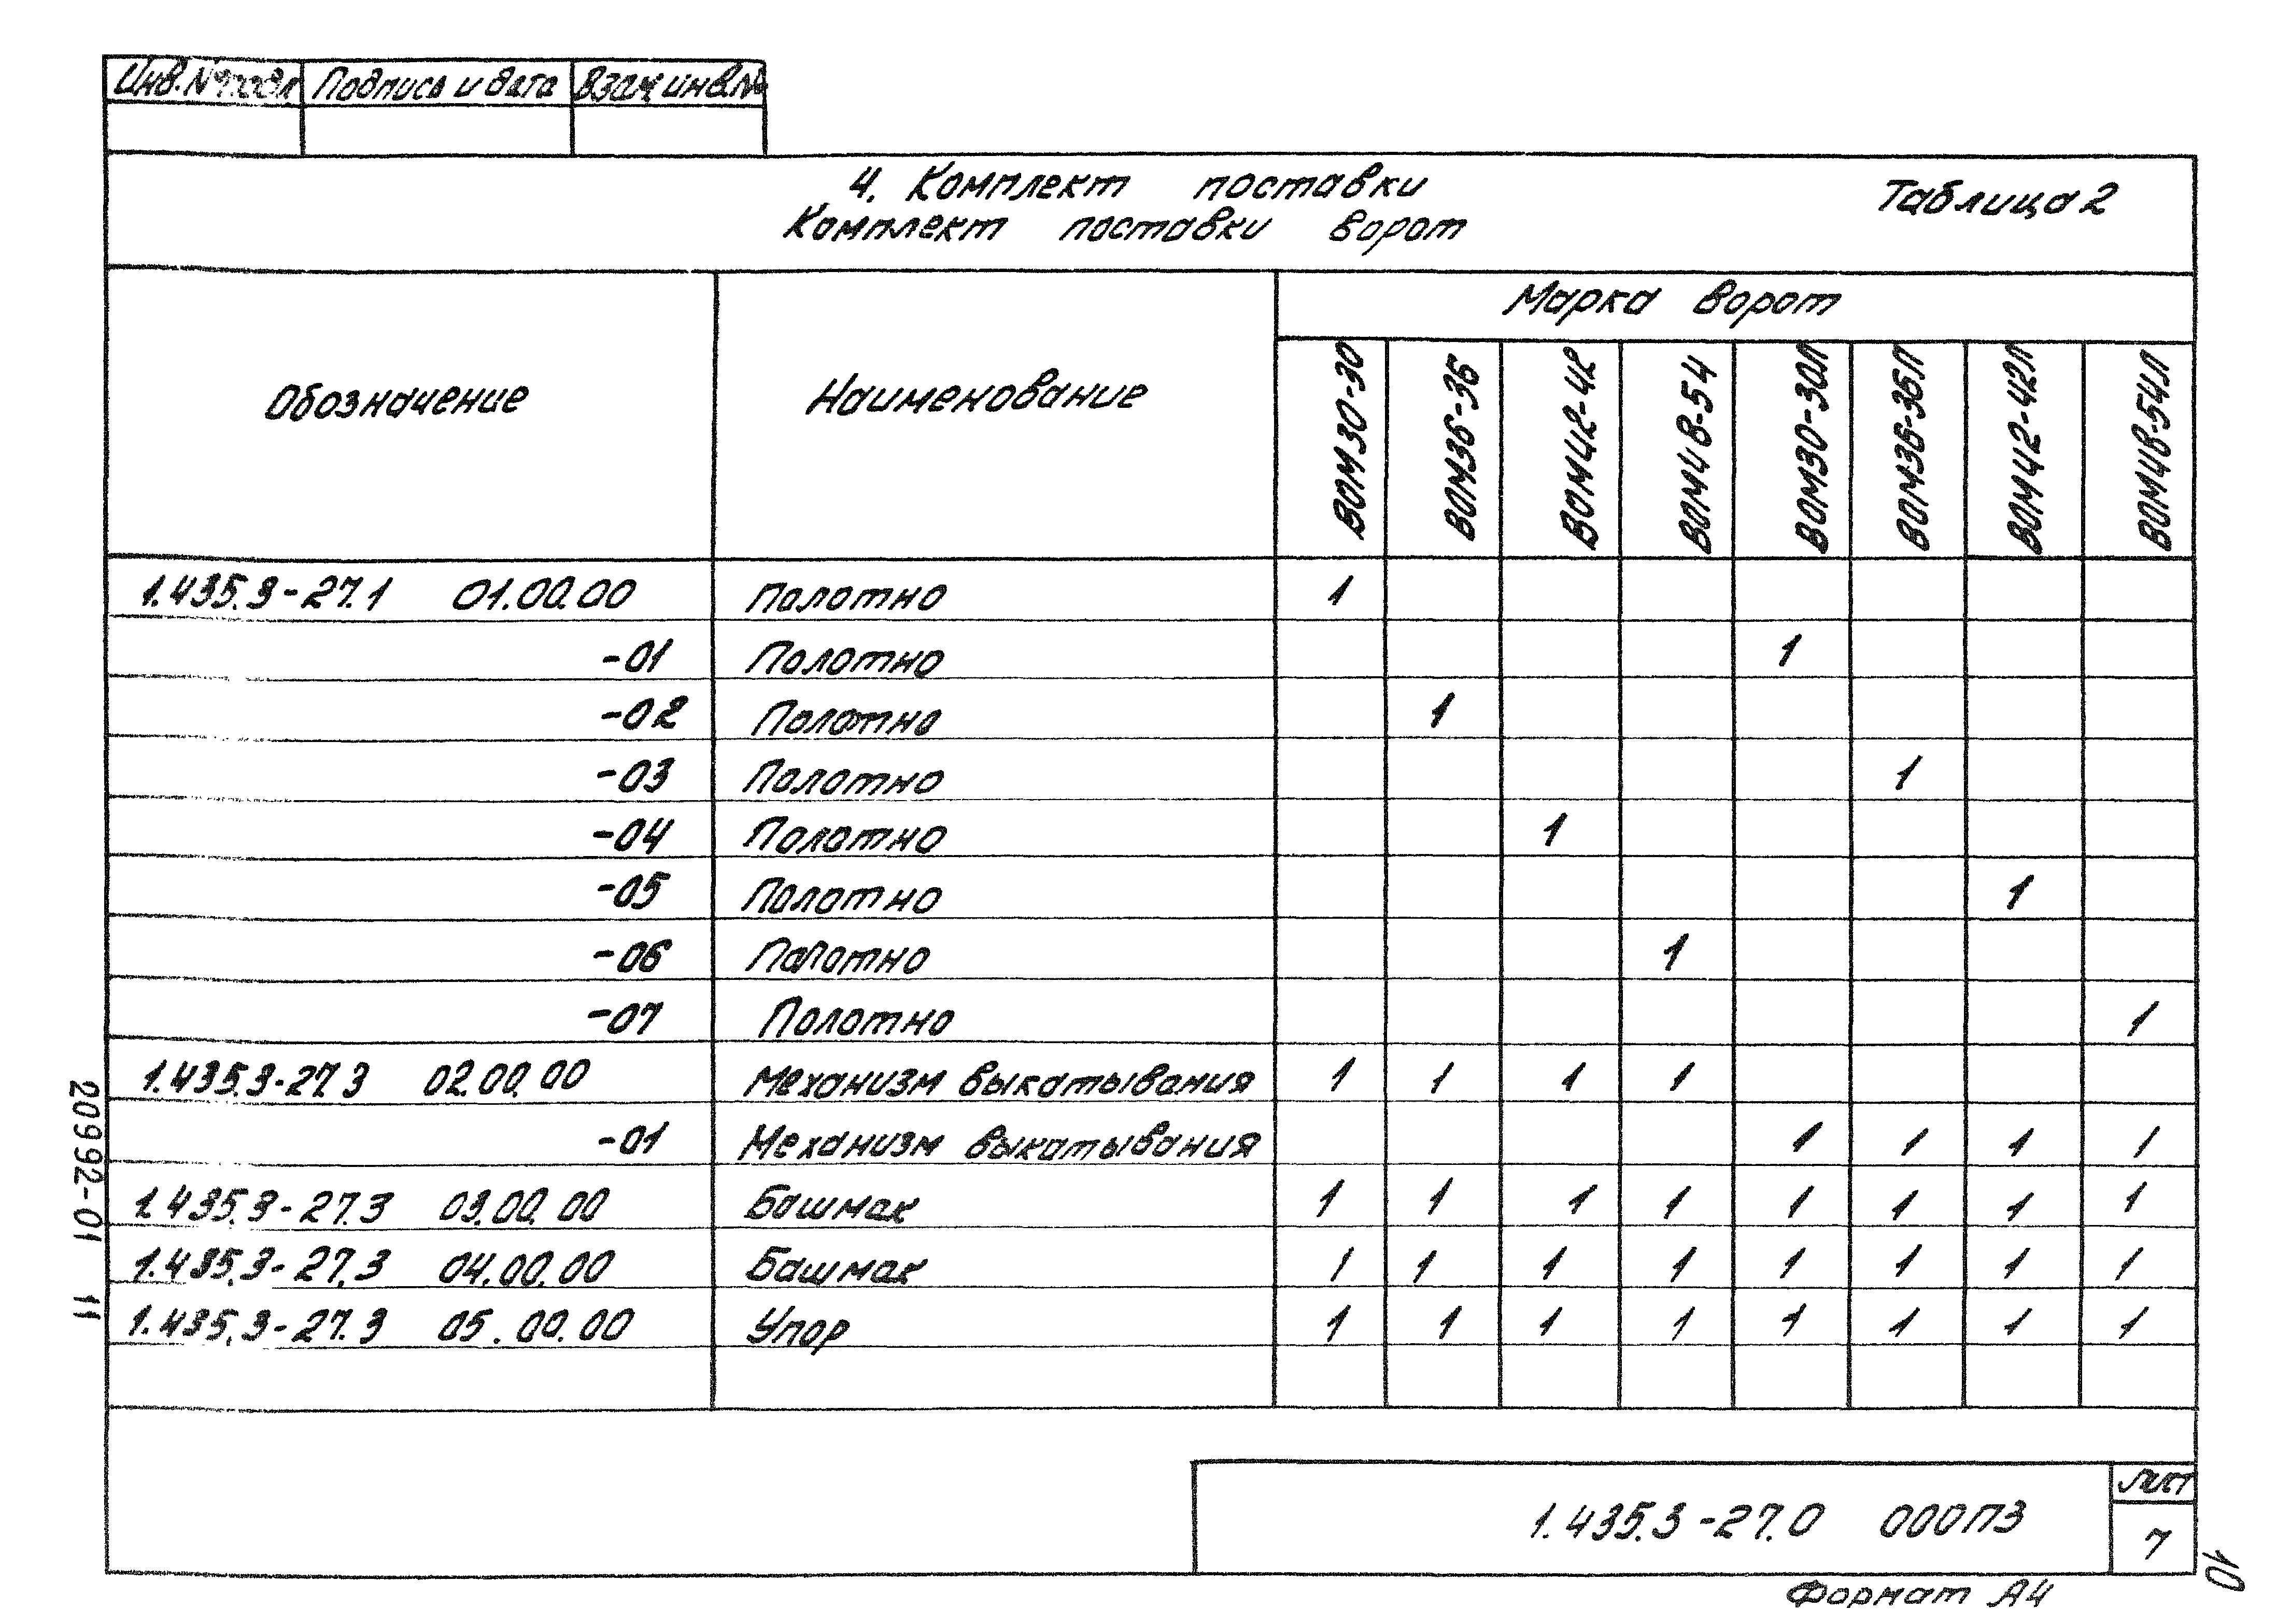 Инв.№подл Подпись и дата Взам инв.№
4. Комплект поставки
Комплект поставки ворот
Таблица 2
Обозначение Наименование Марка ворот
ВОМ30-30 ВОМ36-36 ВОМ42-42 ВОМ48-54 ВОМ30-30Л ВОМ36-36Л ВОМ42-42Л ВОМ48-54Л
1.435.3-27.1 01.00.00 Полотно 1
-01 Полотно 1
-02 Полотно 1
-03 Полотно 1
-04 Полотно 1
-05 Полотно 1
-06 Полотно 1
-07 Полотно 1
1.435.3-27.3 02.00.00 Механизм выкатывания 1 1 1 1
-01 Механизм выкатывания 1 1 1 1
1.435.3-27.3 03.00.00 Башмак 1 1 1 1 1 1 1 1
1.435.3-27.3 04.00.00 Башмак 1 1 1 1 1 1 1 1
1.435.3-27.3 05.00.00 Упор 1 1 1 1 1 1 1 1
20992-01 11
1.435.3-27.0 000ПЗ
Лист
7
10
Формат А4